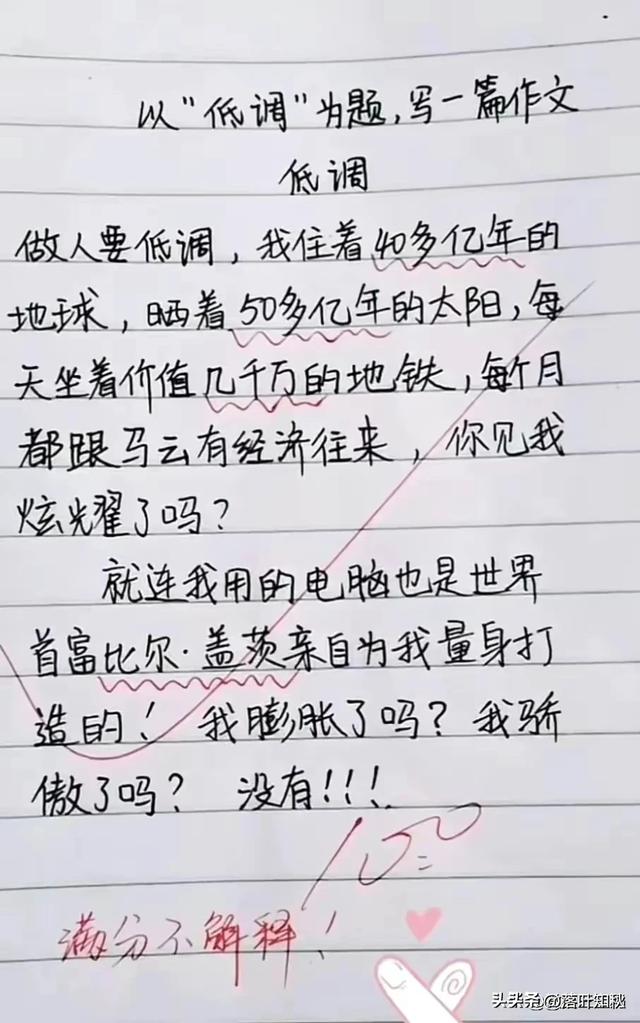 以"低调"为题,写一篇作文
低调
做人要低调,我住着40多亿年的
地球,晒着50多亿年的太阳,每
天坐着价值几千万的地铁,每个月
都跟马云有经济往来,你见我
炫耀了吗?
就连我用的电脑也是世界
首富比尔·盖茨亲自为我量身打
造的!我膨胀了吗?我骄
傲了吗?没有!!!
100
满分不解释!
头条@落叶知秋